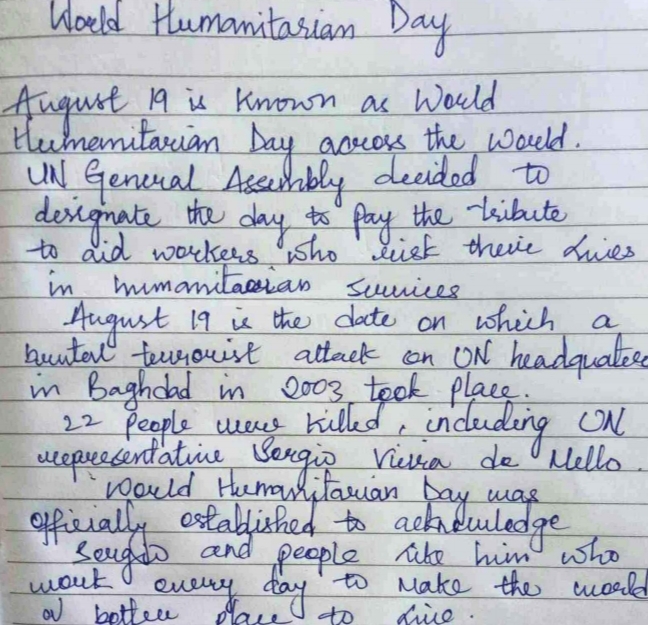 World Humanitarian Day
August 19 is known as World
Humemitarian Day across the world.
UN General Assembly decided to
designate the day to pay the tribute
to aid workers who risk their lives
in humanitarian services
August 19 is the date on which a
brutal terrorist attack on UN headquaters
in Baghdad in 2003 took place.
22 people were killed, including UN
representative Sergio Vieira de Mello.
World Humanitarian Day was
officially established to acknowledge
Sergio and people like him who
work every day to make the world
a better place to live.